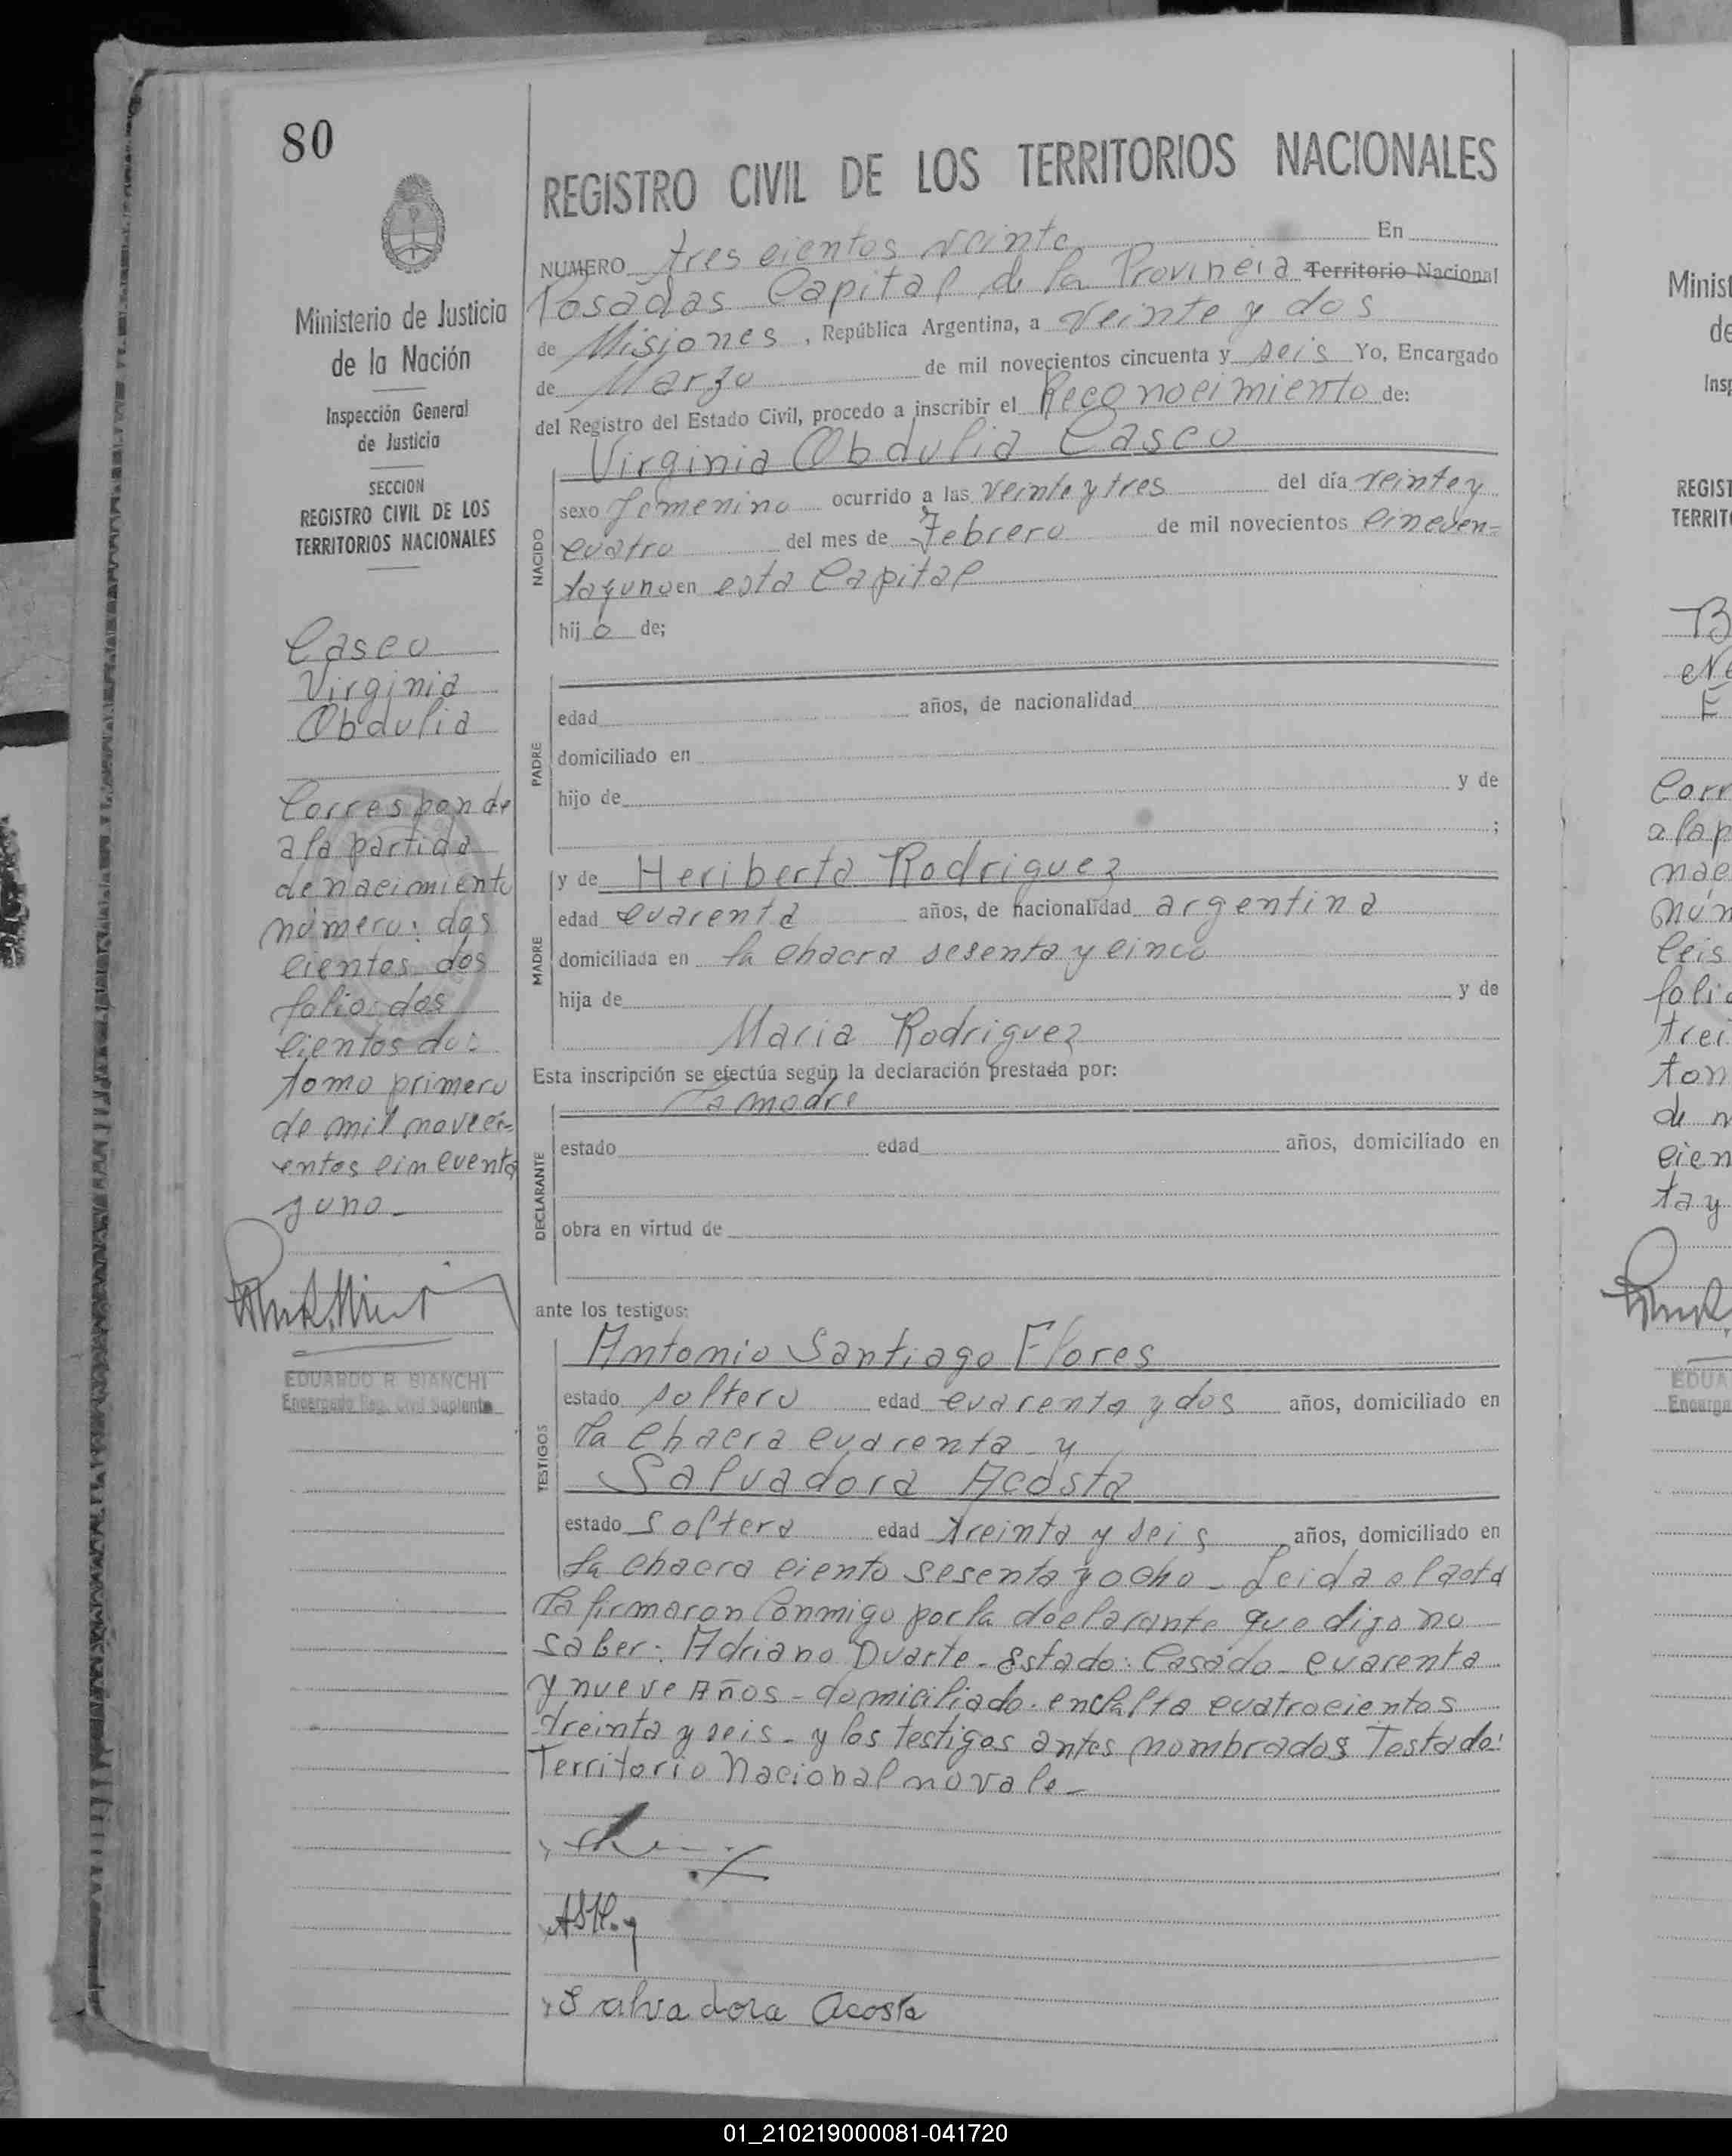 80
Ministerio de Justicia
de la Nación
Inspección General
de Justicia
SECCION
REGISTRO CIVIL DE LOS
TERRITORIOS NACIONALES
Casco
Virginia
Obdulia
Corresponde
a la partida
de nacimiento
número: dos
cientos dos
folio: dos
cientos dos
tomo primero
de mil noveci-
entos cincuenta
y uno.-
EDUARDO R. BIANCHI
Encargado Reg. Civil Suplente
REGISTRO CIVIL DE LOS TERRITORIOS NACIONALES
NUMERO trescientos veinte En
Posadas Capital de la Provincia Territorio Nacional
de Misiones, República Argentina, a veinte y dos
de Marzo de mil novecientos cincuenta y seis Yo, Encargado
del Registro del Estado Civil, procedo a inscribir el Reconocimiento de:
Virginia Obdulia Casco
NACIDO
sexo femenino ocurrido a las veinte y tres del día veinte y
cuatro del mes de Febrero de mil novecientos cincuen=
ta y uno en esta Capital
hij o de;
PADRE
edad años, de nacionalidad
domiciliado en
hijo de y de
;
MADRE
y de Heriberta Rodriguez
edad cuarenta años, de nacionalidad argentina
domiciliada en la chacra sesenta y cinco
hija de y de
Maria Rodriguez
Esta inscripción se efectúa según la declaración prestada por:
DECLARANTE
La madre
estado edad años, domiciliado en
obra en virtud de
ante los testigos:
TESTIGOS
Antonio Santiago Flores
estado soltero edad cuarenta y dos años, domiciliado en
la chacra cuarenta y
Salvadora Acosta
estado Soltera edad treinta y seis años, domiciliado en
la chacra ciento sesenta y ocho - Leida el acta
la firmaron Conmigo por la declarante que dijo no
saber: Adriano Duarte - Estado: Casado - cuarenta
y nueve Años - domiciliado en Salta cuatrocientos
treinta y seis - y los testigos antes nombrados Testado:
Territorio Nacional no vale -
Salvadora Acosta
Minist
de
Insp
REGIST
TERRITO
B
E
Corr
a la p
nac
núm
Seis
folio
trei
tom
de m
cien
ta y
EDUA
Encarga
01_210219000081-041720